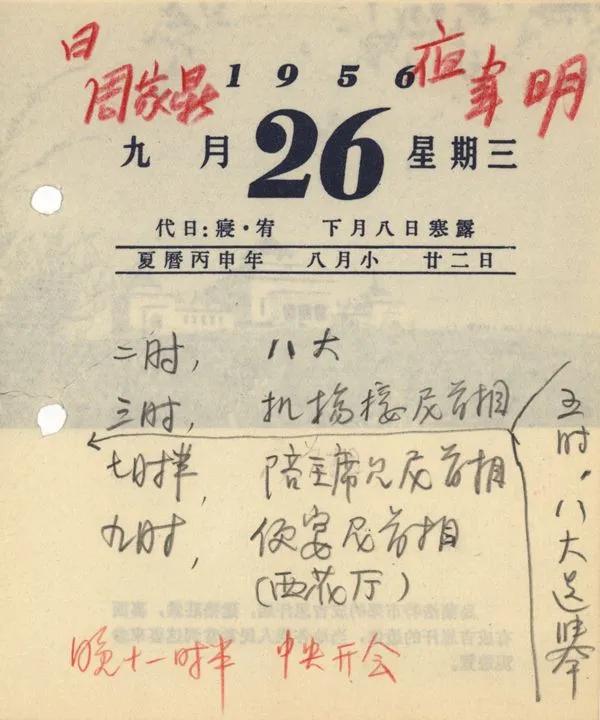 日 周家鼎
夜 韋明
1956
九月 26 星期三
代日:寢·宥 下月八日寒露
夏曆丙申年 八月小 廿二日
二时， 八大
三时， 机场接尼首相
七时半， 陪主席见尼首相
九时， 便宴尼首相
(西花厅)
五时，八大选举
晚十一时半 中央开会